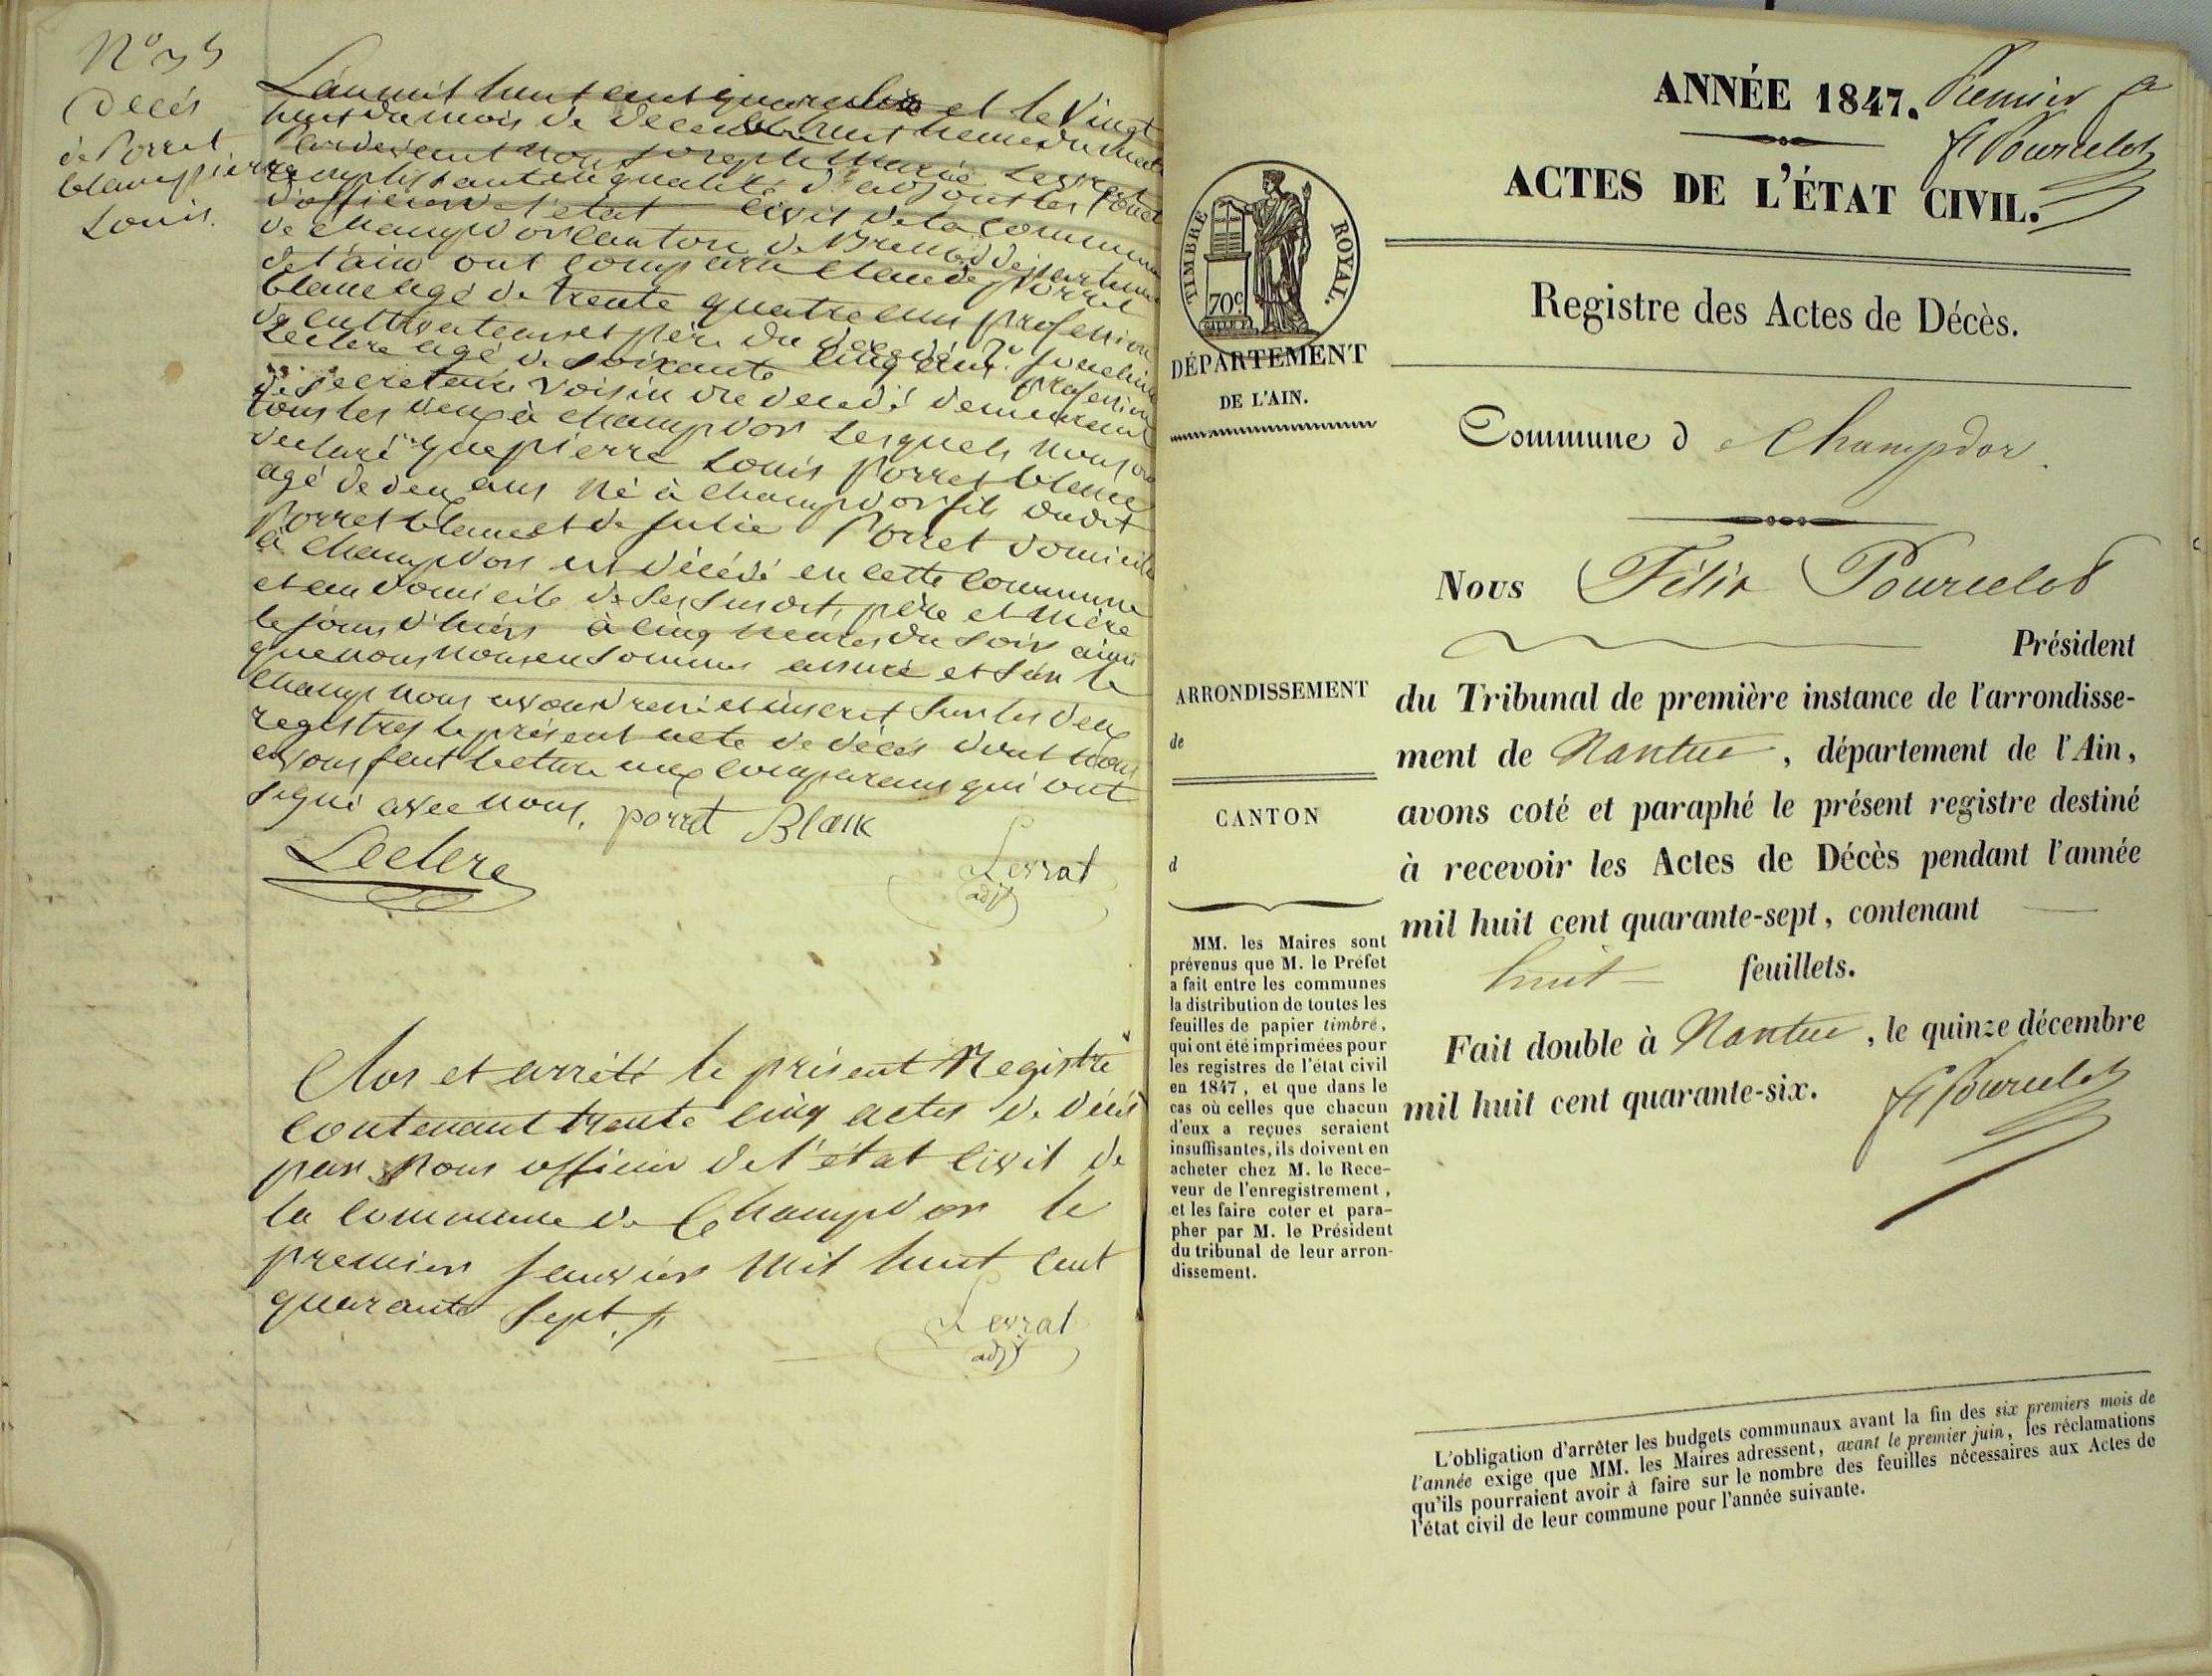 N° 35
Decés
de Porret
blanc pierre
Louis.
L'an mil huit cent quarante six et le vingt
huit du mois de decembre huit heures du matin
Pardevant nous Joseph Marie Levrat
remplissant en qualité d'adjoint les fonct
d'officier de l'état civil de la commune
de champdor canton de Brenod departeme
de l'ain ont comparu Claude Porret
blanc agé de trente quatre ans profession
de cultivateur et père du décédé 2°
Leclerc agé de soixante cinq ans profession
de secretaire voisin du decedé demeurant
tous les deux à champdor Lesquels nous on
declaré que pierre Louis Porret blanc
agé de deux ans né à champdor fils dudit
Porret blanc et de Julie Porret domicilié
à champdor est décédé en cette commune
et au domicile de ses susdits père et mère
le jour d'hier à cinq heures du soir ainsi
que nous nous en sommes assuré et sur le
champ nous avons dressé et inscrit sur les deux
registres le présent acte de décés dont nous
avons fait lecture aux comparans qui ont
signé avec nous. porret Blanc
Leclerc
Levrat
adjt
Clos et arrêté le présent Registre
contenant trente cinq actes de décés
par nous officier de l'état civil de
la commune de Champdor le
premier Janvier mil huit cent
quarante sept.
Levrat
adjt
ANNÉE 1847. Premier f
fx Pourcelot
ACTES DE L'ÉTAT CIVIL.
Registre des Actes de Décès.
TIMBRE ROYAL.
70c
DÉPARTEMENT
DE L'AIN.
ARRONDISSEMENT
de
CANTON
d
MM. les Maires sont
prévenus que M. le Préfet
a fait entre les communes
la distribution de toutes les
feuilles de papier timbré,
qui ont été imprimées pour
les registres de l'état civil
en 1847, et que dans le
cas où celles que chacun
d'eux a reçues seraient
insuffisantes, ils doivent en
acheter chez M. le Rece-
veur de l'enregistrement,
et les faire coter et para-
pher par M. le Président
du tribunal de leur arron-
dissement.
Commune d e Champdor.
Nous Félix Pourcelot
Président
du Tribunal de première instance de l'arrondisse-
ment de Nantua, département de l'Ain,
avons coté et paraphé le présent registre destiné
à recevoir les Actes de Décès pendant l'année
mil huit cent quarante-sept, contenant
huit feuillets.
Fait double à Nantua, le quinze décembre
mil huit cent quarante-six.
fx Pourcelot
L'obligation d'arrêter les budgets communaux avant la fin des six premiers mois de
l'année exige que MM. les Maires adressent, avant le premier juin, les réclamations
qu'ils pourraient avoir à faire sur le nombre des feuilles nécessaires aux Actes de
l'état civil de leur commune pour l'année suivante.